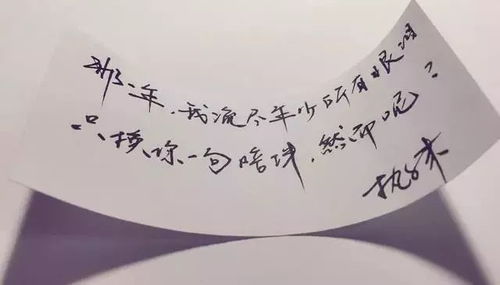 那二年，我流尽年少所有眼泪
只换你一句陪我，然而呢？
执笔